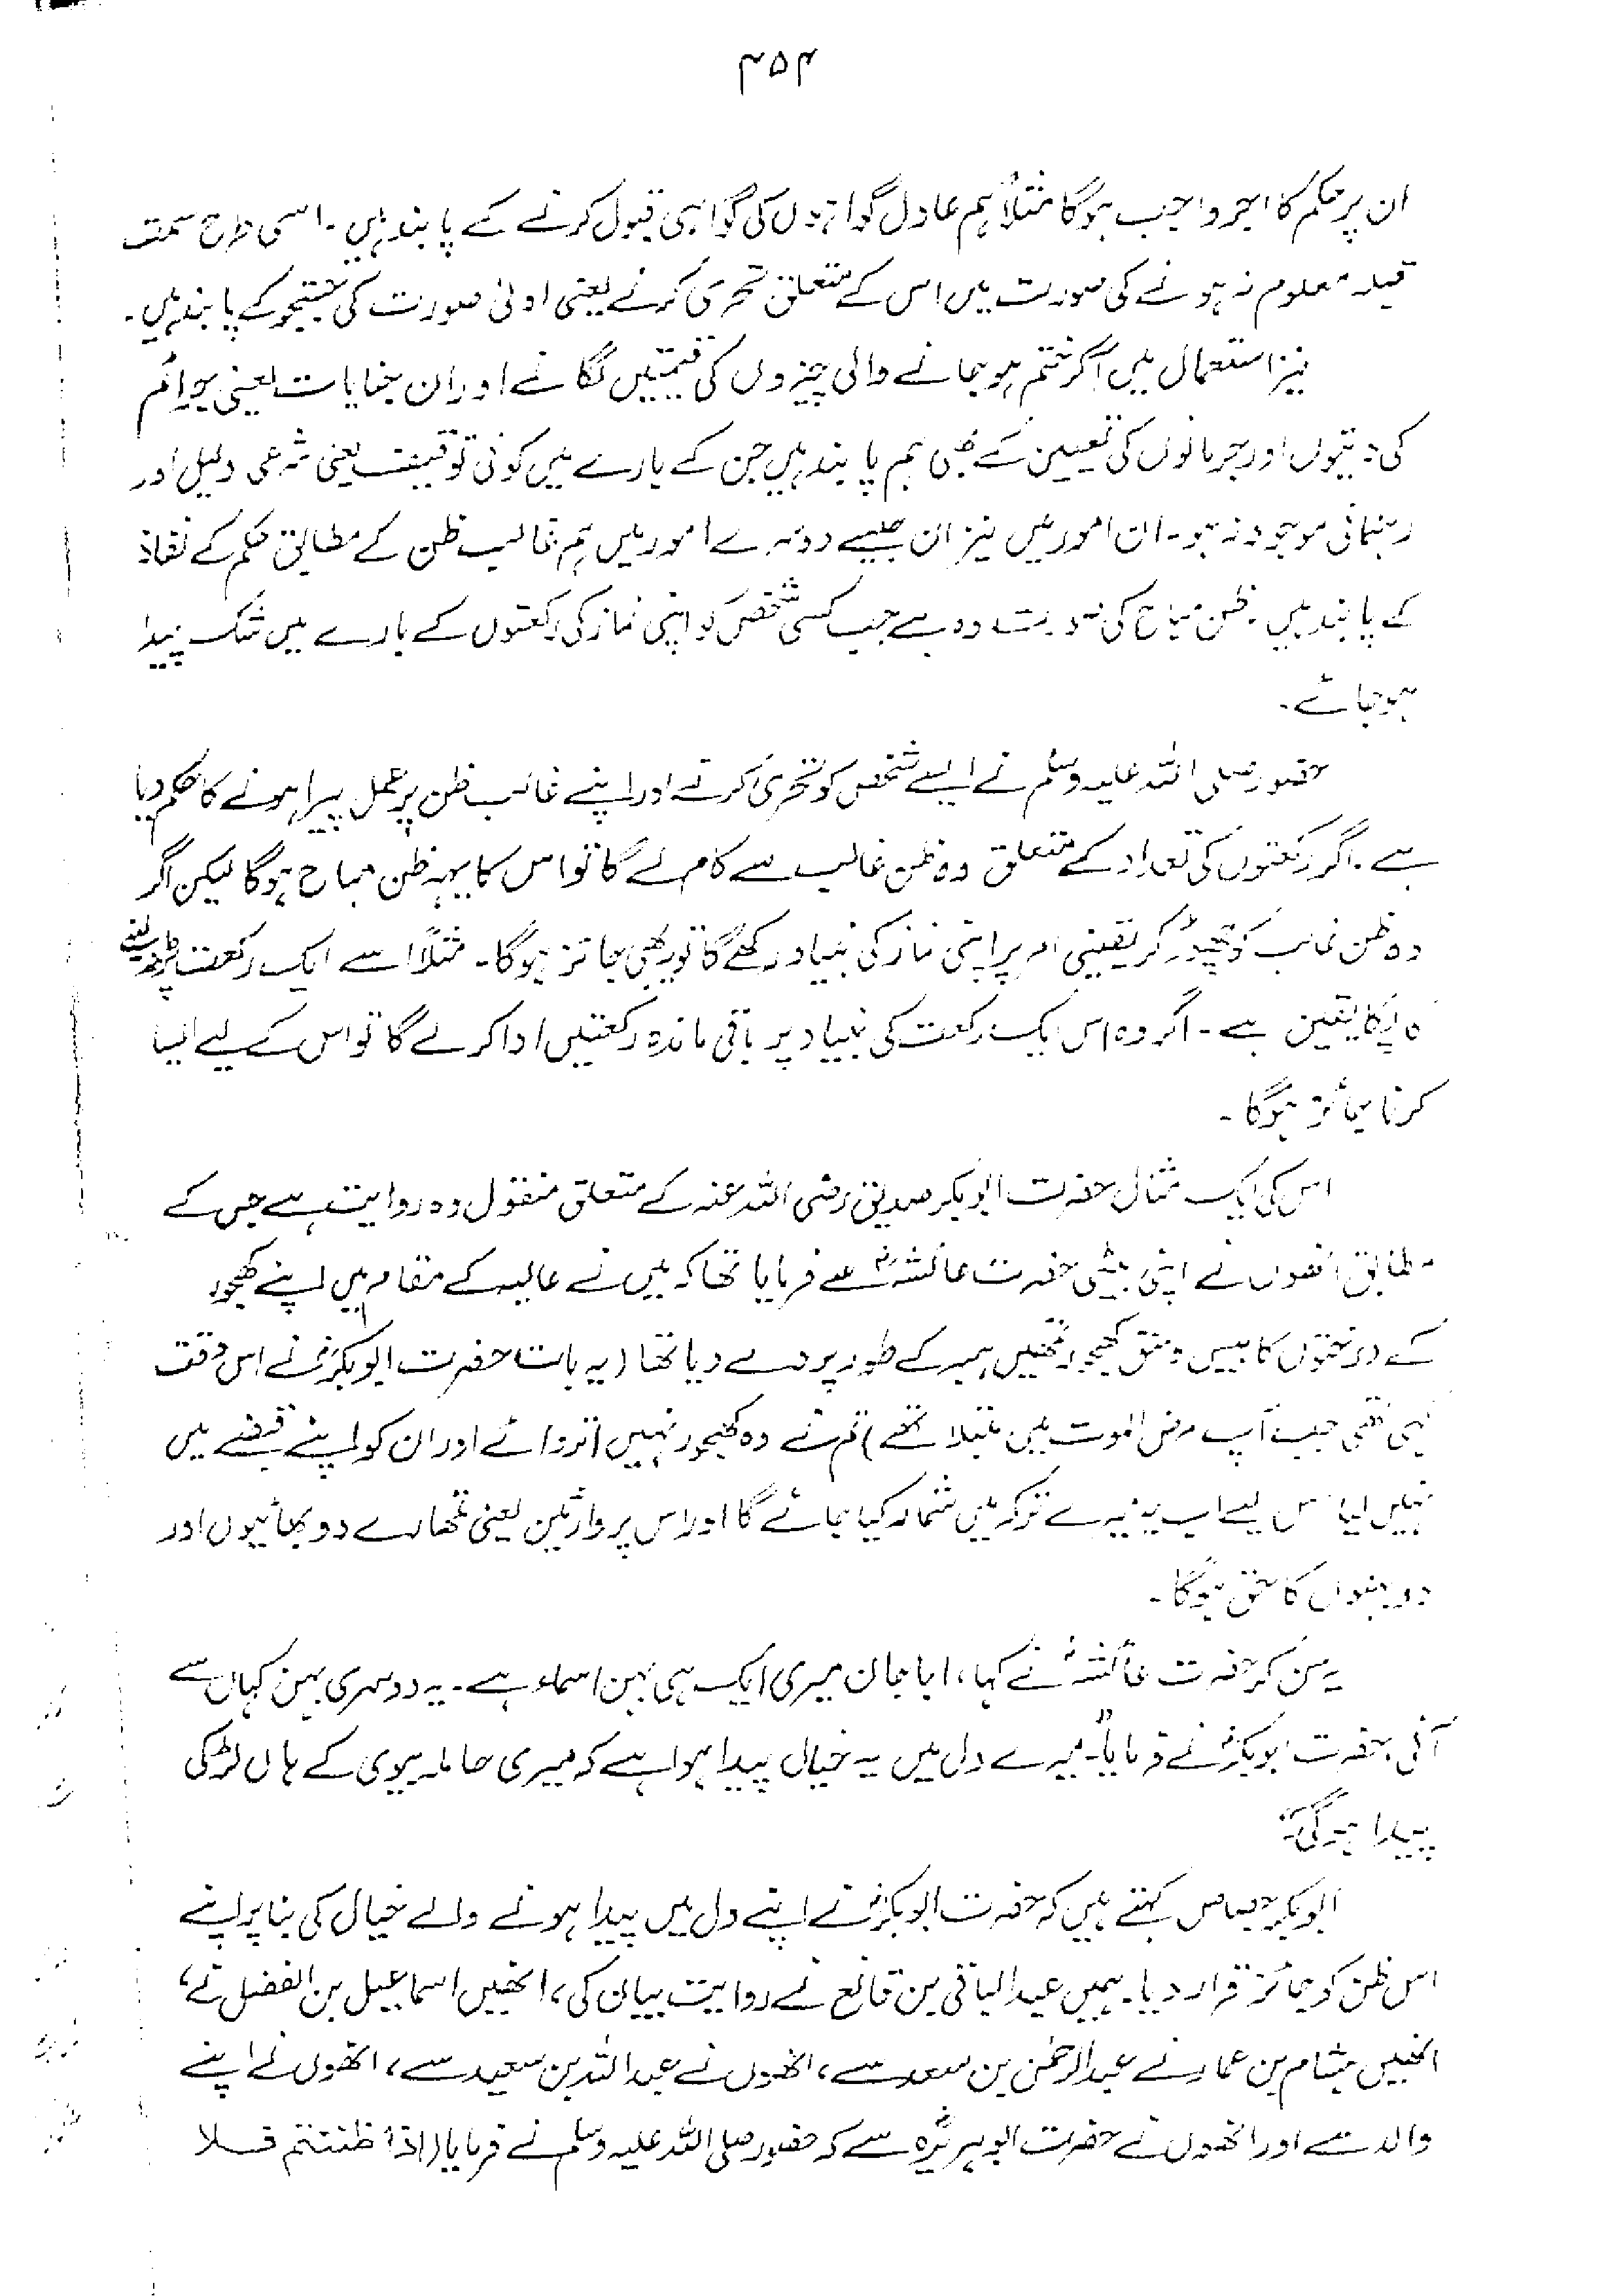 ۴۵۴
ان پر حکم کا اجر واجب ہوگا مثلاً ہم عادل گواہوں کی گواہی قبول کرنے کے پابند ہیں۔ اسی طرح سمت
قبلہ معلوم نہ ہونے کی صورت میں اس کے متعلق تحری کرنے یعنی اولیٰ صورت کی جستجو کے پابند ہیں۔
نیز استعمال میں آ کر ختم ہو جانے والی چیزوں کی قیمتیں لگانے اور ان جنایات یعنی جرائم
کی دیتوں اور جرمانوں کی تعیین کے بھی ہم پابند ہیں جن کے بارے میں کوئی توقیف یعنی شرعی دلیل اور
رہنمائی موجود نہ ہو۔ ان امور میں نیز ان جیسے دوسرے امور میں ہم غالب ظن کے مطابق حکم کے نفاذ
کے پابند ہیں۔ ظن مباح کی صورت وہ ہے جب کسی شخص کو اپنی نماز کی رکعتوں کے بارے میں شک پیدا
ہو جائے۔
حضور صلی اللہ علیہ وسلم نے ایسے شخص کو تحری کرنے اور اپنے غالب ظن پر عمل پیرا ہونے کا حکم دیا
ہے۔ اگر رکعتوں کی تعداد کے متعلق وہ ظن غالب سے کام لے گا تو اس کا یہ ظن مباح ہوگا لیکن اگر
وہ ظن غالب کو چھوڑ کر یقینی امر پر اپنی نماز کی بنیاد رکھے گا تو یہ بھی جائز ہوگا۔ مثلاً اسے ایک رکعت پڑھ لینے
کا پکا یقین ہے۔ اگر وہ اس ایک رکعت کی بنیاد پر باقی ماندہ رکعتیں ادا کرلے گا تو اس کے لیے ایسا
کرنا جائز ہوگا۔
اس کی ایک مثال حضرت ابوبکر صدیق رضی اللہ عنہ کے متعلق منقول وہ روایت ہے جس کے
مطابق انھوں نے اپنی بیٹی حضرت عائشہؓ سے فرمایا تھا کہ میں نے عالیہ کے مقام میں اپنے کھجور
کے درختوں کا بیس وسق کھجور تمھیں ہبہ کے طور پر دے دیا تھا (یہ بات حضرت ابوبکرؓ نے اس وقت
کہی تھی جب آپ مرض الموت میں مبتلا تھے) تم نے وہ کھجور نہیں اتروائے اور ان کو اپنے قبضے میں
نہیں لیا اس لیے اب یہ میرے ترکہ میں شمار کیا جائے گا اور اس پر وارثین یعنی تمھارے دو بھائیوں اور
دو بہنوں کا حق ہوگا۔
یہ سن کر حضرت عائشہؓ نے کہا، ابا جان میری ایک ہی بہن اسماء ہے۔ یہ دوسری بہن کہاں سے
آئی، حضرت ابوبکرؓ نے فرمایا "میرے دل میں یہ خیال پیدا ہوا ہے کہ میری حاملہ بیوی کے ہاں لڑکی
پیدا ہوگی"۔
ابوبکر جصاص کہتے ہیں کہ حضرت ابوبکرؓ نے اپنے دل میں پیدا ہونے والے خیال کی بنا پر اپنے
اس ظن کو جائز قرار دیا۔ ہمیں عبدالباقی بن قانع نے روایت بیان کی، انھیں اسماعیل بن الفضل نے،
انھیں ہشام بن عمار نے عبدالرحمٰن بن سعد سے، انھوں نے عبداللہ بن سعید سے، انھوں نے اپنے
والد سے اور انھوں نے حضرت ابوہریرہؓ سے کہ حضور صلی اللہ علیہ وسلم نے فرمایا (اذا ظننتم فلا